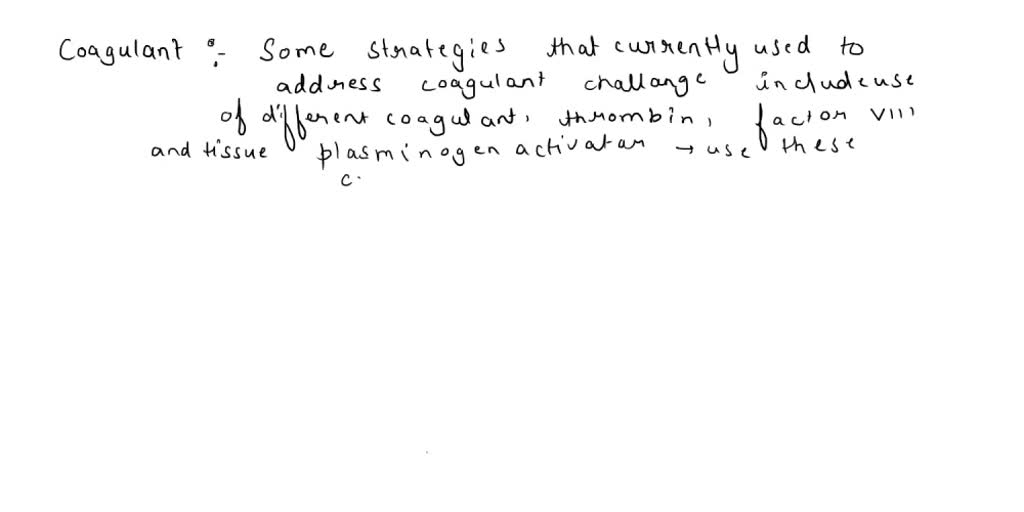 Coagulant :- Some strategies that currently used to
address coagulant challange include use
of different coagulant, thrombin, factor VIII
and tissue plasminogen activator → use these
c.